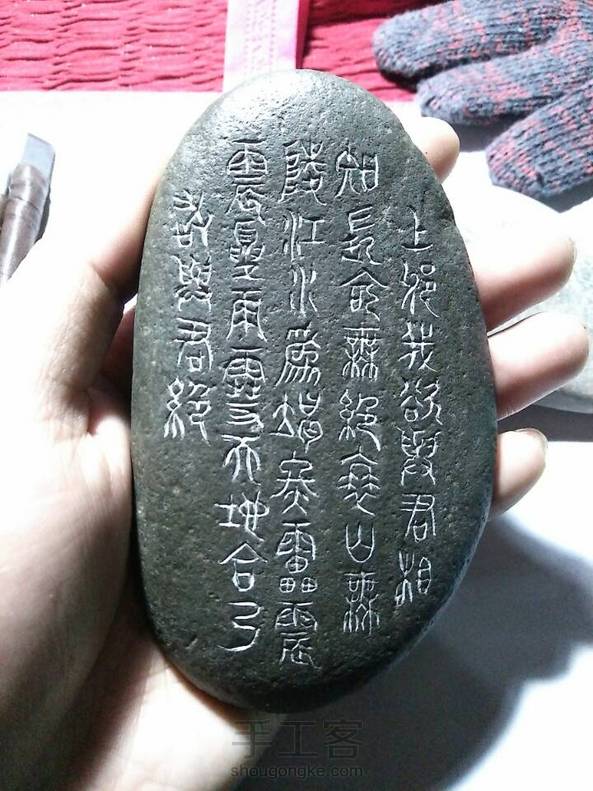 上邪我欲與君相
知長命無絕衰山無
陵江水爲竭冬雷震
震夏雨雪天地合乃
敢與君絕
手工客
shougongke.com